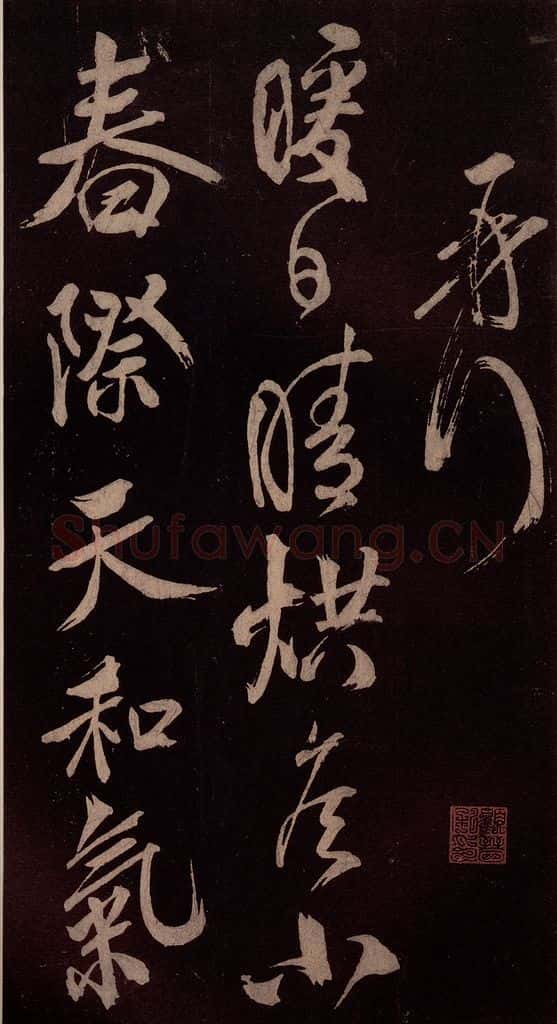 行
暖日晴烘侯小
春際天和氣
Shufawang.CN